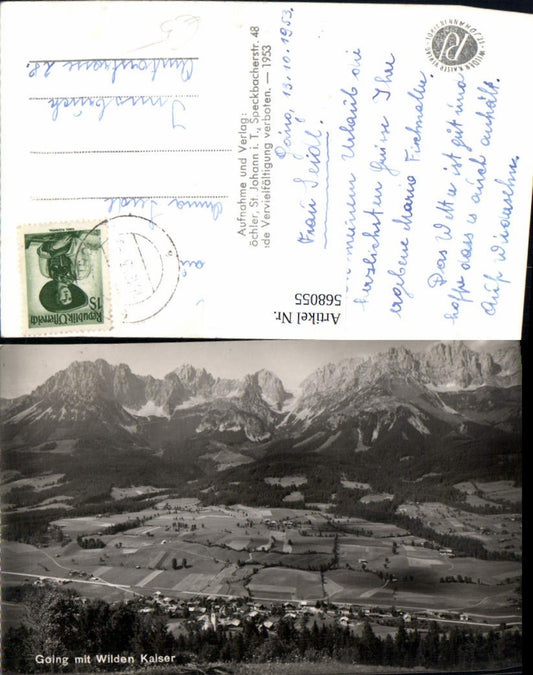 Going, 13.10.1953.
Frau Seidl.
meinem Urlaub die
herzlichsten Grüsse Ihre
ergebene Maria
Das Wetter ist gut und
hoffe dass es auch anhält.
Auf Wiedersehn.
Aufnahme und Verlag:
öchler, St. Johann i. T., Speckbacherstr. 48
de Vervielfältigung verboten. — 1953
Anna Seidl
Innsbruck
WILDEN KAISER
ST. JOHANN
REPUBLIK ÖSTERREICH
1S
Artikel Nr.
568055
Going mit Wilden Kaiser